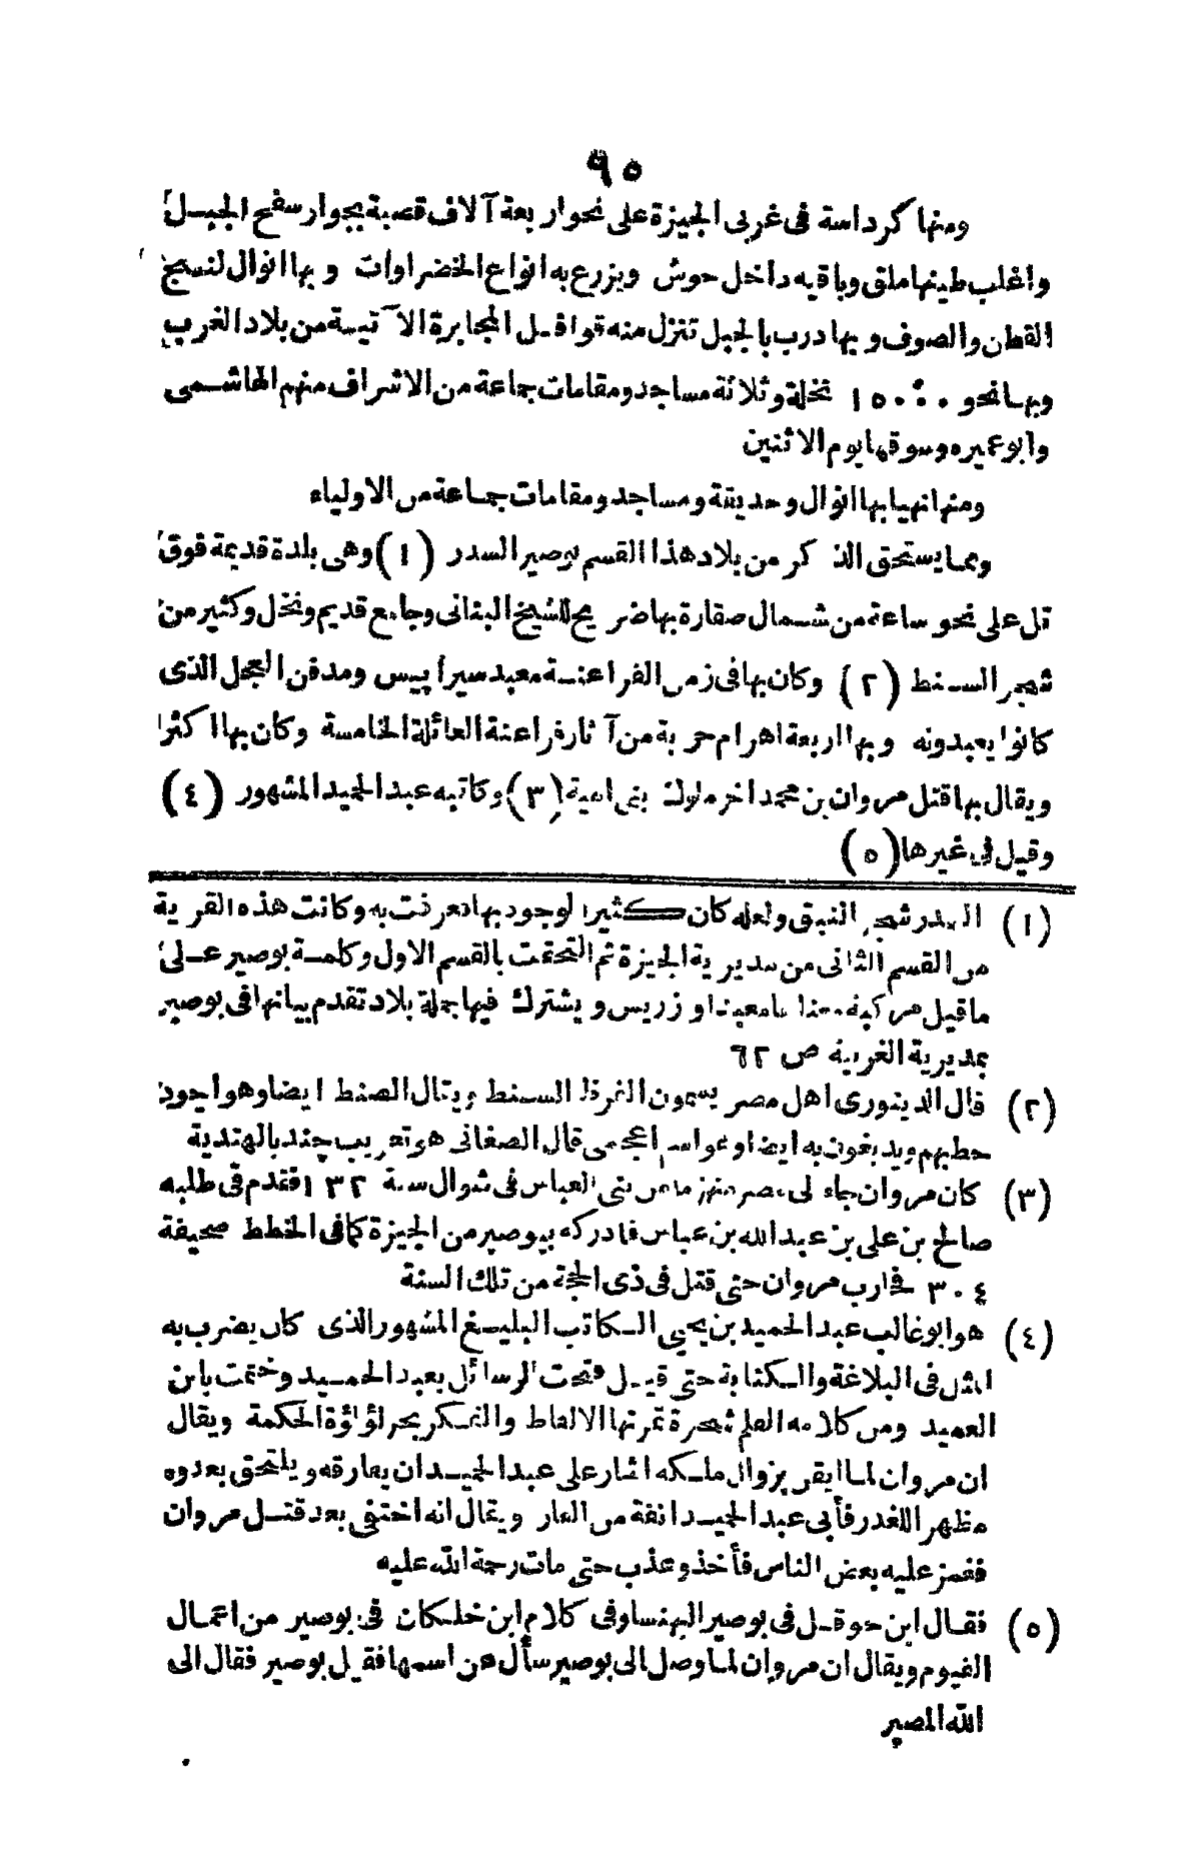 ٩٥
ومنها كرداسة فى غربى الجيزة على نحو اربعة آلاف قصبة بجوار سفح الجبل
واغلب طينها ملق وباقيه داخل حوش ويزرع به انواع الخضراوات وبها انوال لنسج
القطن والصوف وبها درب بالجبل تنزل منه قوافل المجابرة الآتية من بلاد الغرب
وبها نحو ١٥٠٠ نخلة وثلاثة مساجد ومقامات جماعة من الاشراف منهم الهاشمى
وابو عميره وسوقها يوم الاثنين
ومنها نهيا بها انوال وحديقة ومساجد ومقامات جماعة من الاولياء
ومما يستحق الذكر من بلاد هذا القسم بوصير السدر (١) وهى بلدة قديمة فوق
تل على نحو ساعة من شمال صقارة بها ضريح للشيخ البنانى وجامع قديم ونخل وكثير من
شجر السنط (٢) وكان بها فى زمن الفراعنة معبد سيرابيس ومدفن العجل الذى
كانوا يعبدونه وبها اربعة اهرام حربة من آثار فراعنة العائلة الخامسة وكان بها اكثر
ويقال بها قتل مروان بن محمد اخر ملوك بنى امية (٣) وكاتبه عبد الحميد المشهور (٤)
وقيل فى غيرها (٥)
(١) السدر شجر النبق ولعله كان كثيرا لوجود بها فعرفت به وكانت هذه القرية
من القسم الثانى من مديرية الجيزة ثم التحقت بالقسم الاول وكلمة بوصير على
ما قيل مركبة معناها معبد اوزريس ويشترك فيها جملة بلاد تقدم بيانها فى بوصير
بمديرية الغربية ص ٦٢
(٢) قال الدينورى اهل مصر يسمون القرظ السنط ويقال الصنط ايضا وهو اجود
حطبهم ويدبغون به ايضا وهو اسم اعجمى قال الصغانى هو تعريب چند بالهندية
(٣) كان مروان جاء لى مصر منهزما من بنى العباس فى شوال سنة ١٣٢ فقدم فى طلبه
صالح بن على بن عبد الله بن عباس فادركه ببوصير من الجيزة كما فى الخطط صحيفة
٣٠٤ فحارب مروان حتى قتل فى ذى الحجة من تلك السنة
(٤) هو ابو غالب عبد الحميد بن يحيى الكاتب البليغ المشهور الذى كان يضرب به
المثل فى البلاغة والكتابة حتى قيل فتحت الرسائل بعبد الحميد وختمت بابن
العميد ومن كلامه العلم شجرة ثمرتها الالفاظ والفكر بحر لؤلؤة الحكمة ويقال
ان مروان لما ايقن بزوال ملكه اشار على عبد الحميد ان يفارقه ويلتحق بعدوه
مظهر اللغدر فأبى عبد الحميد انفة من العار ويقال انه اختفى بعد قتل مروان
فغمز عليه بعض الناس فأخذ وعذب حتى مات رحمة الله عليه
(٥) فقال ابن حوقل فى بوصير البهنسا وفى كلام ابن خلكان فى بوصير من اعمال
الفيوم ويقال ان مروان لما وصل الى بوصير سأل عن اسمها فقيل بوصير فقال الى
الله المصير